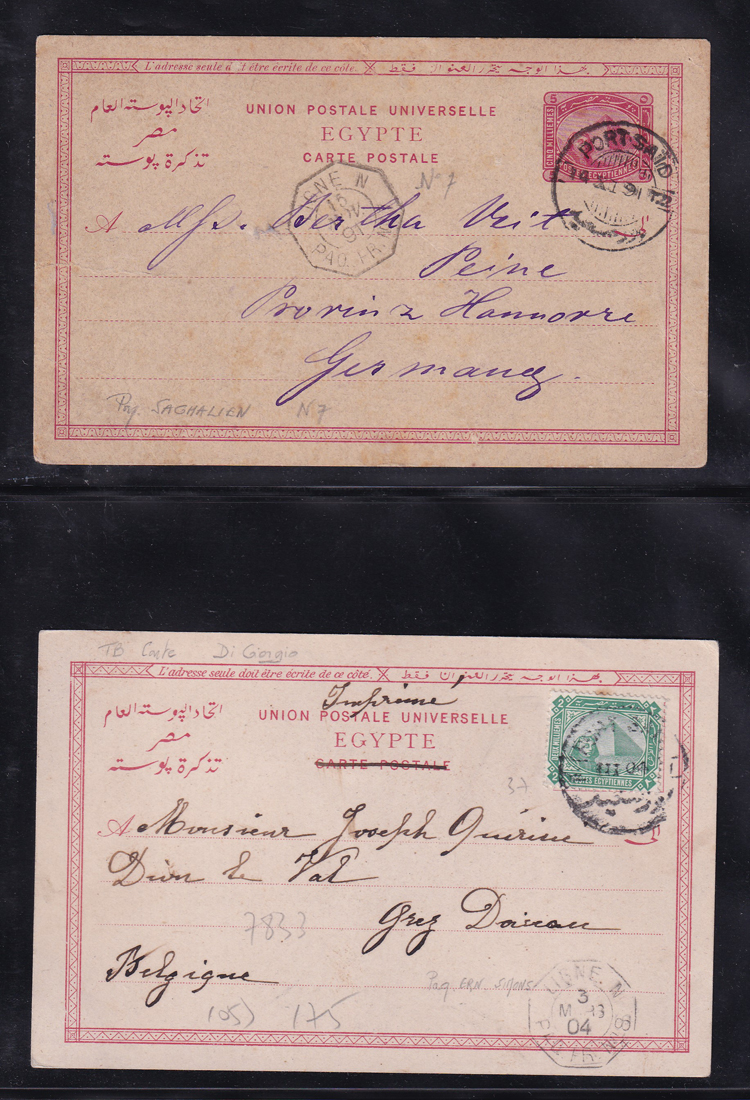 L'adresse seule doit être écrite de ce côté.
بهذا الوجه يتحرر العنوان فقط
اتحاد البوسته العام
مصر
تذكرة بوسته
UNION POSTALE UNIVERSELLE
EGYPTE
CARTE POSTALE
5
CINQ MILLIEMES
POSTES EGYPTIENNES
PORT-SAID
91
LIGNE N
15
91
PAQ. FR. N
N 7
A Mss. Bertha Veit
Peine
Provinz Hannovre
Germany.
Paq. SAGHALIEN N 7
TB Carte Di Giorgio
L'adresse seule doit être écrite de ce côté.
بهذا الوجه يتحرر العنوان فقط
Imprimé
اتحاد البوسته العام
مصر
تذكرة بوسته
UNION POSTALE UNIVERSELLE
EGYPTE
CARTE POSTALE
DEUX MILLIEMES
POSTES EGYPTIENNES
III 04
37
A Monsieur Joseph Quérine
Dion le Val
Grez Doiceau
7833
Belgique
Paq ERN. SIMONS
LIGNE N
3
MARS
04
PAQ. FR. N
175